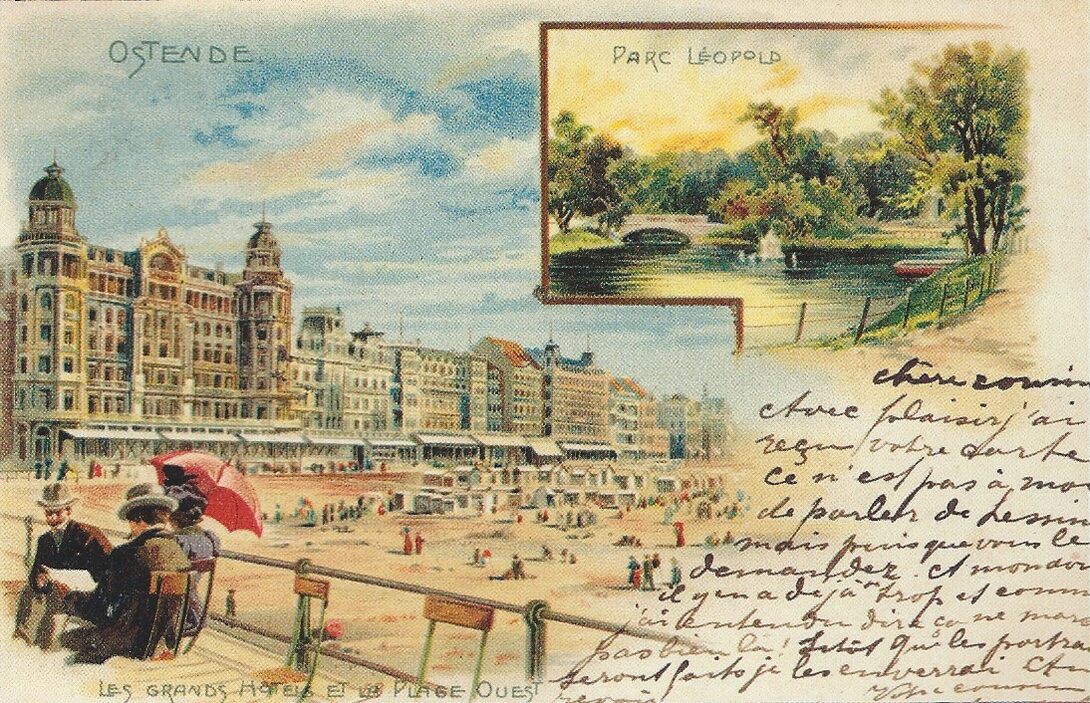 OSTENDE.
PARC LÉOPOLD
chère cousin
Avec plaisir j'ai
reçu votre carte
ce n'est pas à moi
de parler de
mais puisque vous le
demandez. A mon
il y en a déjà trop et comm
j'ai entendu dire ça ne mar
pas bien là! Sitôt que les portra
seront faits je les enverrai
revoir
Votre cousin
LES GRANDS HÔTELS ET LA PLAGE OUEST